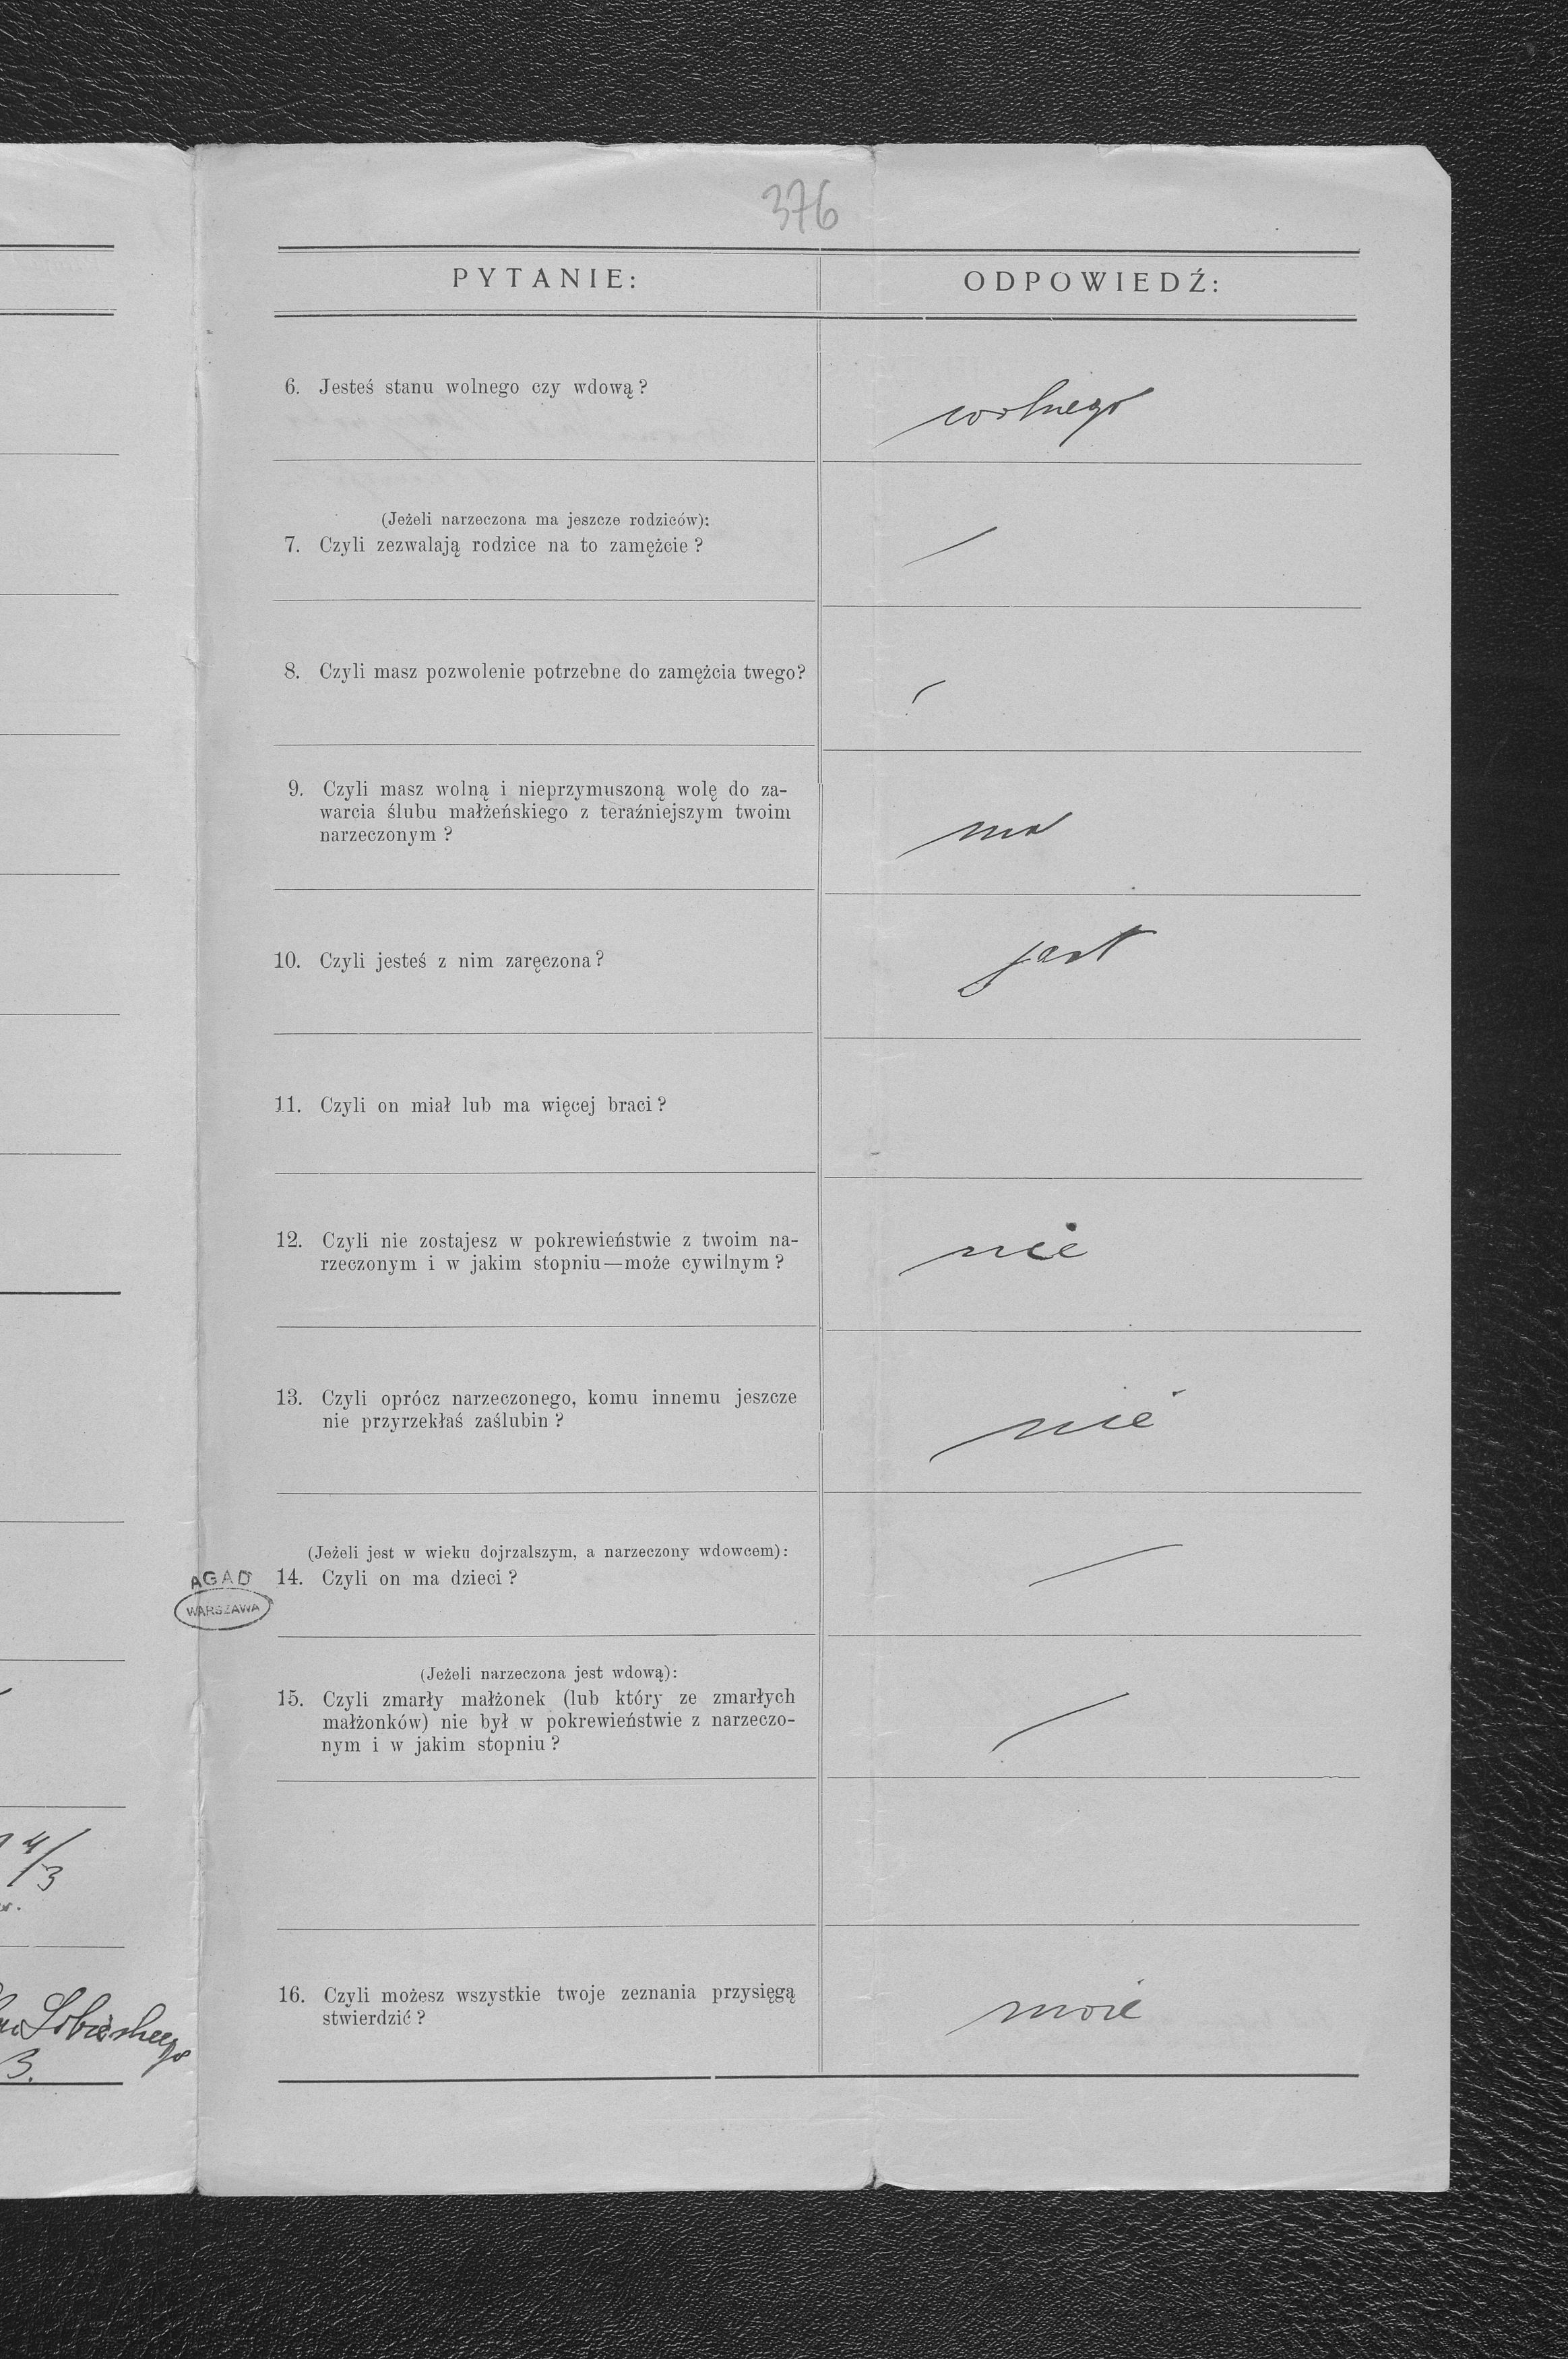 376
PYTANIE:
ODPOWIEDŹ:
6. Jesteś stanu wolnego czy wdową?
wolnego
(Jeżeli narzeczona ma jeszcze rodziców):
7. Czyli zezwalają rodzice na to zamężcie?
8. Czyli masz pozwolenie potrzebne do zamężcia twego?
9. Czyli masz wolną i nieprzymuszoną wolę do za-
warcia ślubu małżeńskiego z teraźniejszym twoim
narzeczonym?
ma
10. Czyli jesteś z nim zaręczona?
jest
11. Czyli on miał lub ma więcej braci?
12. Czyli nie zostajesz w pokrewieństwie z twoim na-
rzeczonym i w jakim stopniu—może cywilnym?
nie
13. Czyli oprócz narzeczonego, komu innemu jeszcze
nie przyrzekłaś zaślubin?
nie
(Jeżeli jest w wieku dojrzalszym, a narzeczony wdowcem):
14. Czyli on ma dzieci?
AGAD
WARSZAWA
(Jeżeli narzeczona jest wdową):
15. Czyli zmarły małżonek (lub który ze zmarłych
małżonków) nie był w pokrewieństwie z narzeczo-
nym i w jakim stopniu?
4/3
16. Czyli możesz wszystkie twoje zeznania przysięgą
stwierdzić?
może
Sobieskiego
3.